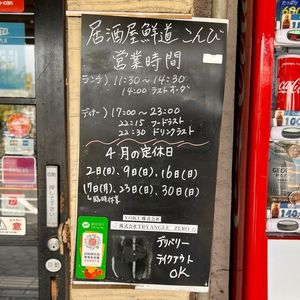 居酒屋鮮道 こんび
営業時間
ランチ) 11:30～14:30
14:00 ラストオーダ
ディナー) 17:00～23:00
22:15 フードラスト
22:30 ドリンクラスト
4月の定休日
2日(日)、9日(日)、16日(日)
17日(月)、23日(日)、30日(日)
↳臨時休業
YOKU株式会社
株式会社TRYANGLE ZERO
デリバリー
テイクアウト
OK
押して
注意